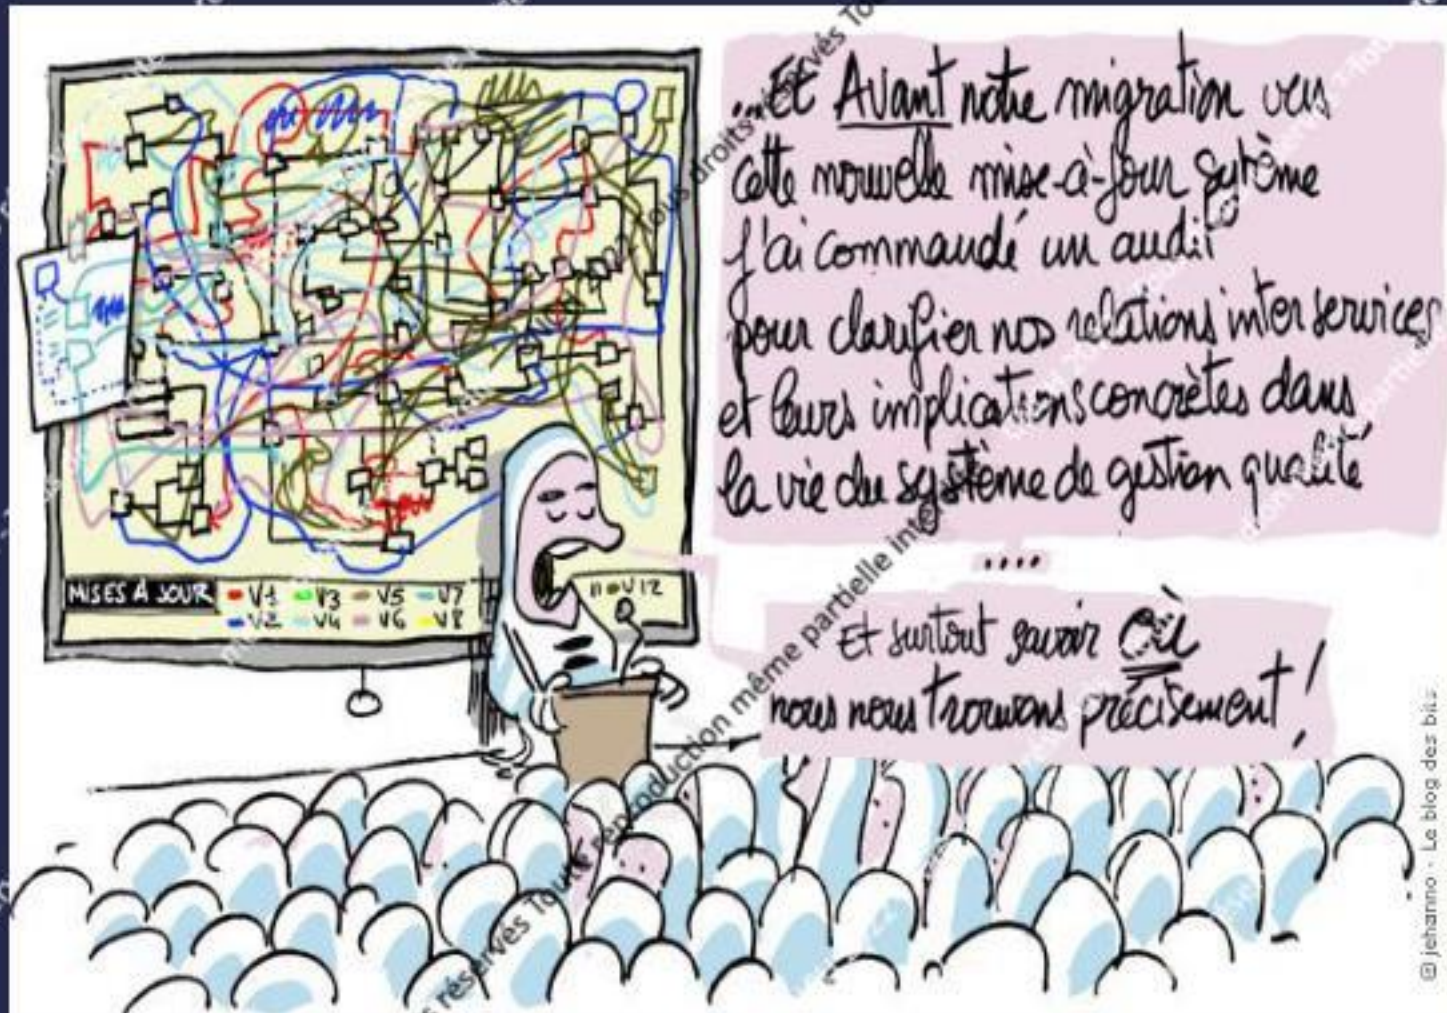 ...Et Avant notre migration vers
cette nouvelle mise-à-jour système
j'ai commandé un audit
pour clarifier nos relations inter services
et leurs implications concrètes dans
la vie du système de gestion qualité
....
Et surtout savoir Où
nous nous trouvons précisément !
MISES À JOUR V1 V3 V5 V7
V2 V4 V6 V8
V12
© jehanno - Le blog des bits
Tous droits réservés Toute reproduction même partielle